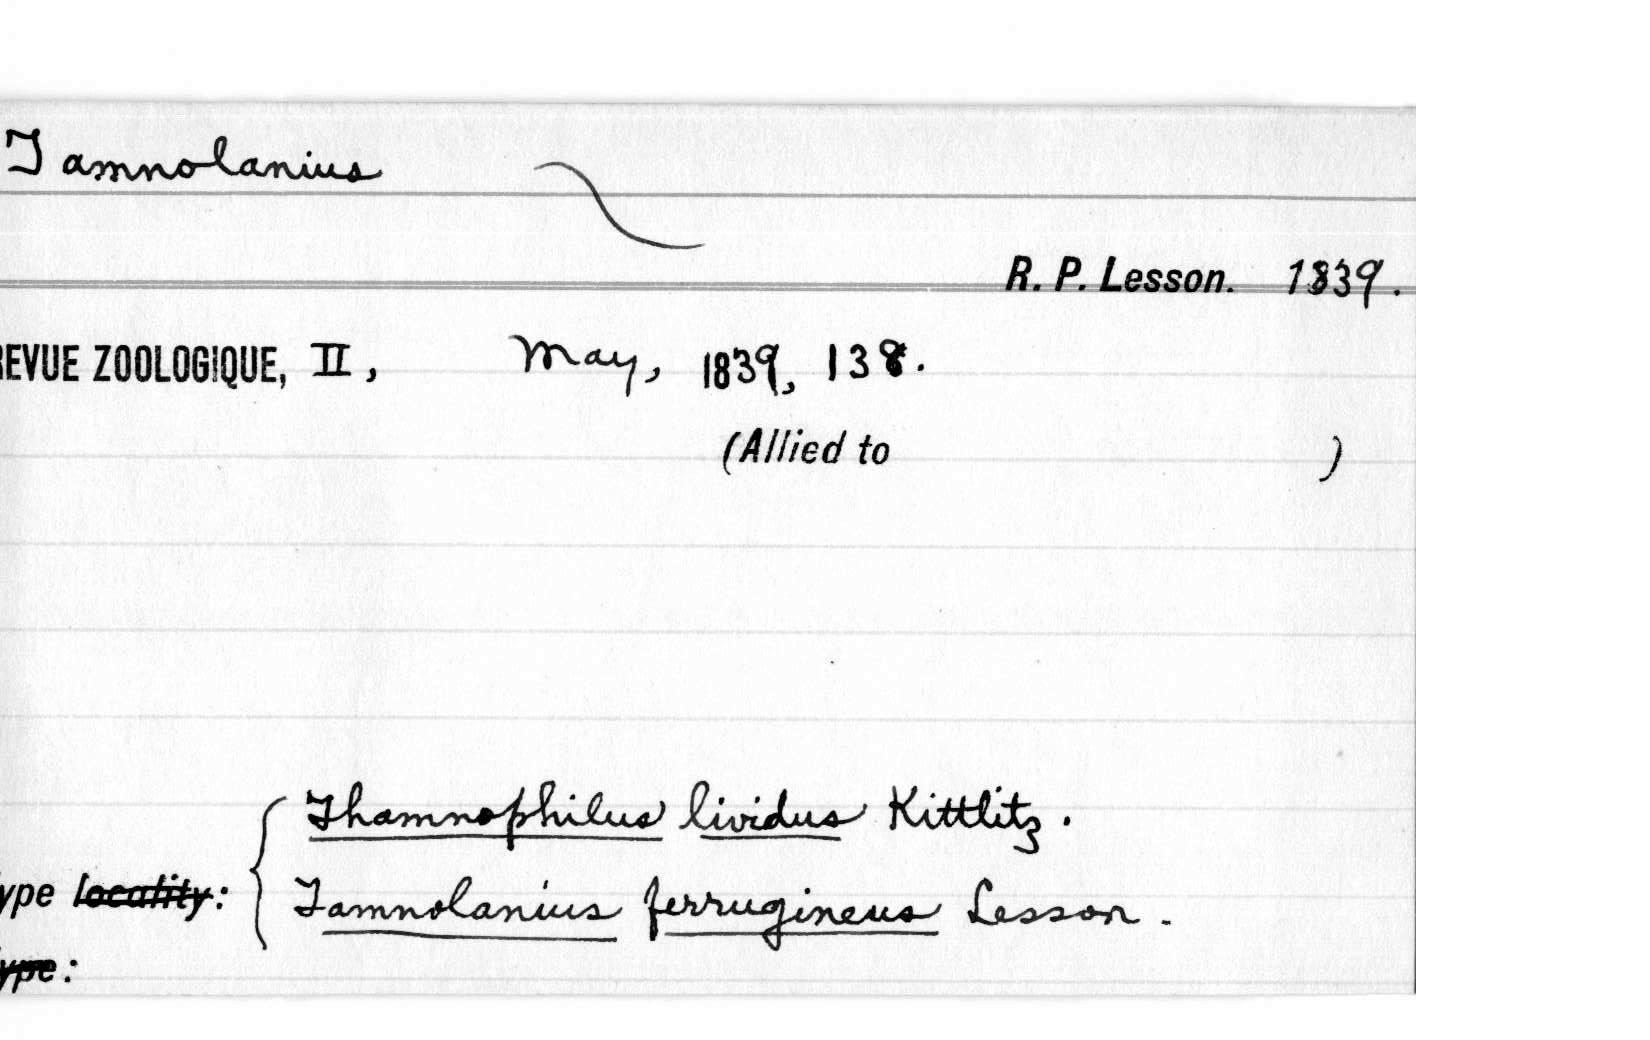 Tamnolanius
R. P. Lesson. 1839.
REVUE ZOOLOGIQUE, II, May, 1839, 138.
(Allied to )
Thamnophilus lividus Kittlitz.
ype locality:
Tamnolanius ferrugineus Lesson.
ype: